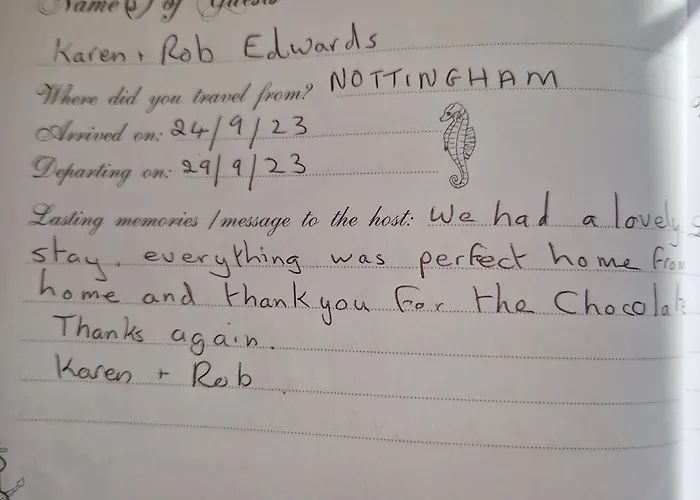 Name(s) of Guests
Karen + Rob Edwards
Where did you travel from? NOTTINGHAM
Arrived on: 24/9/23
Departing on: 29/9/23
Lasting memories / message to the host: We had a lovely
stay. everything was perfect home from
home and thankyou for the Chocolate
Thanks again.
Karen + Rob